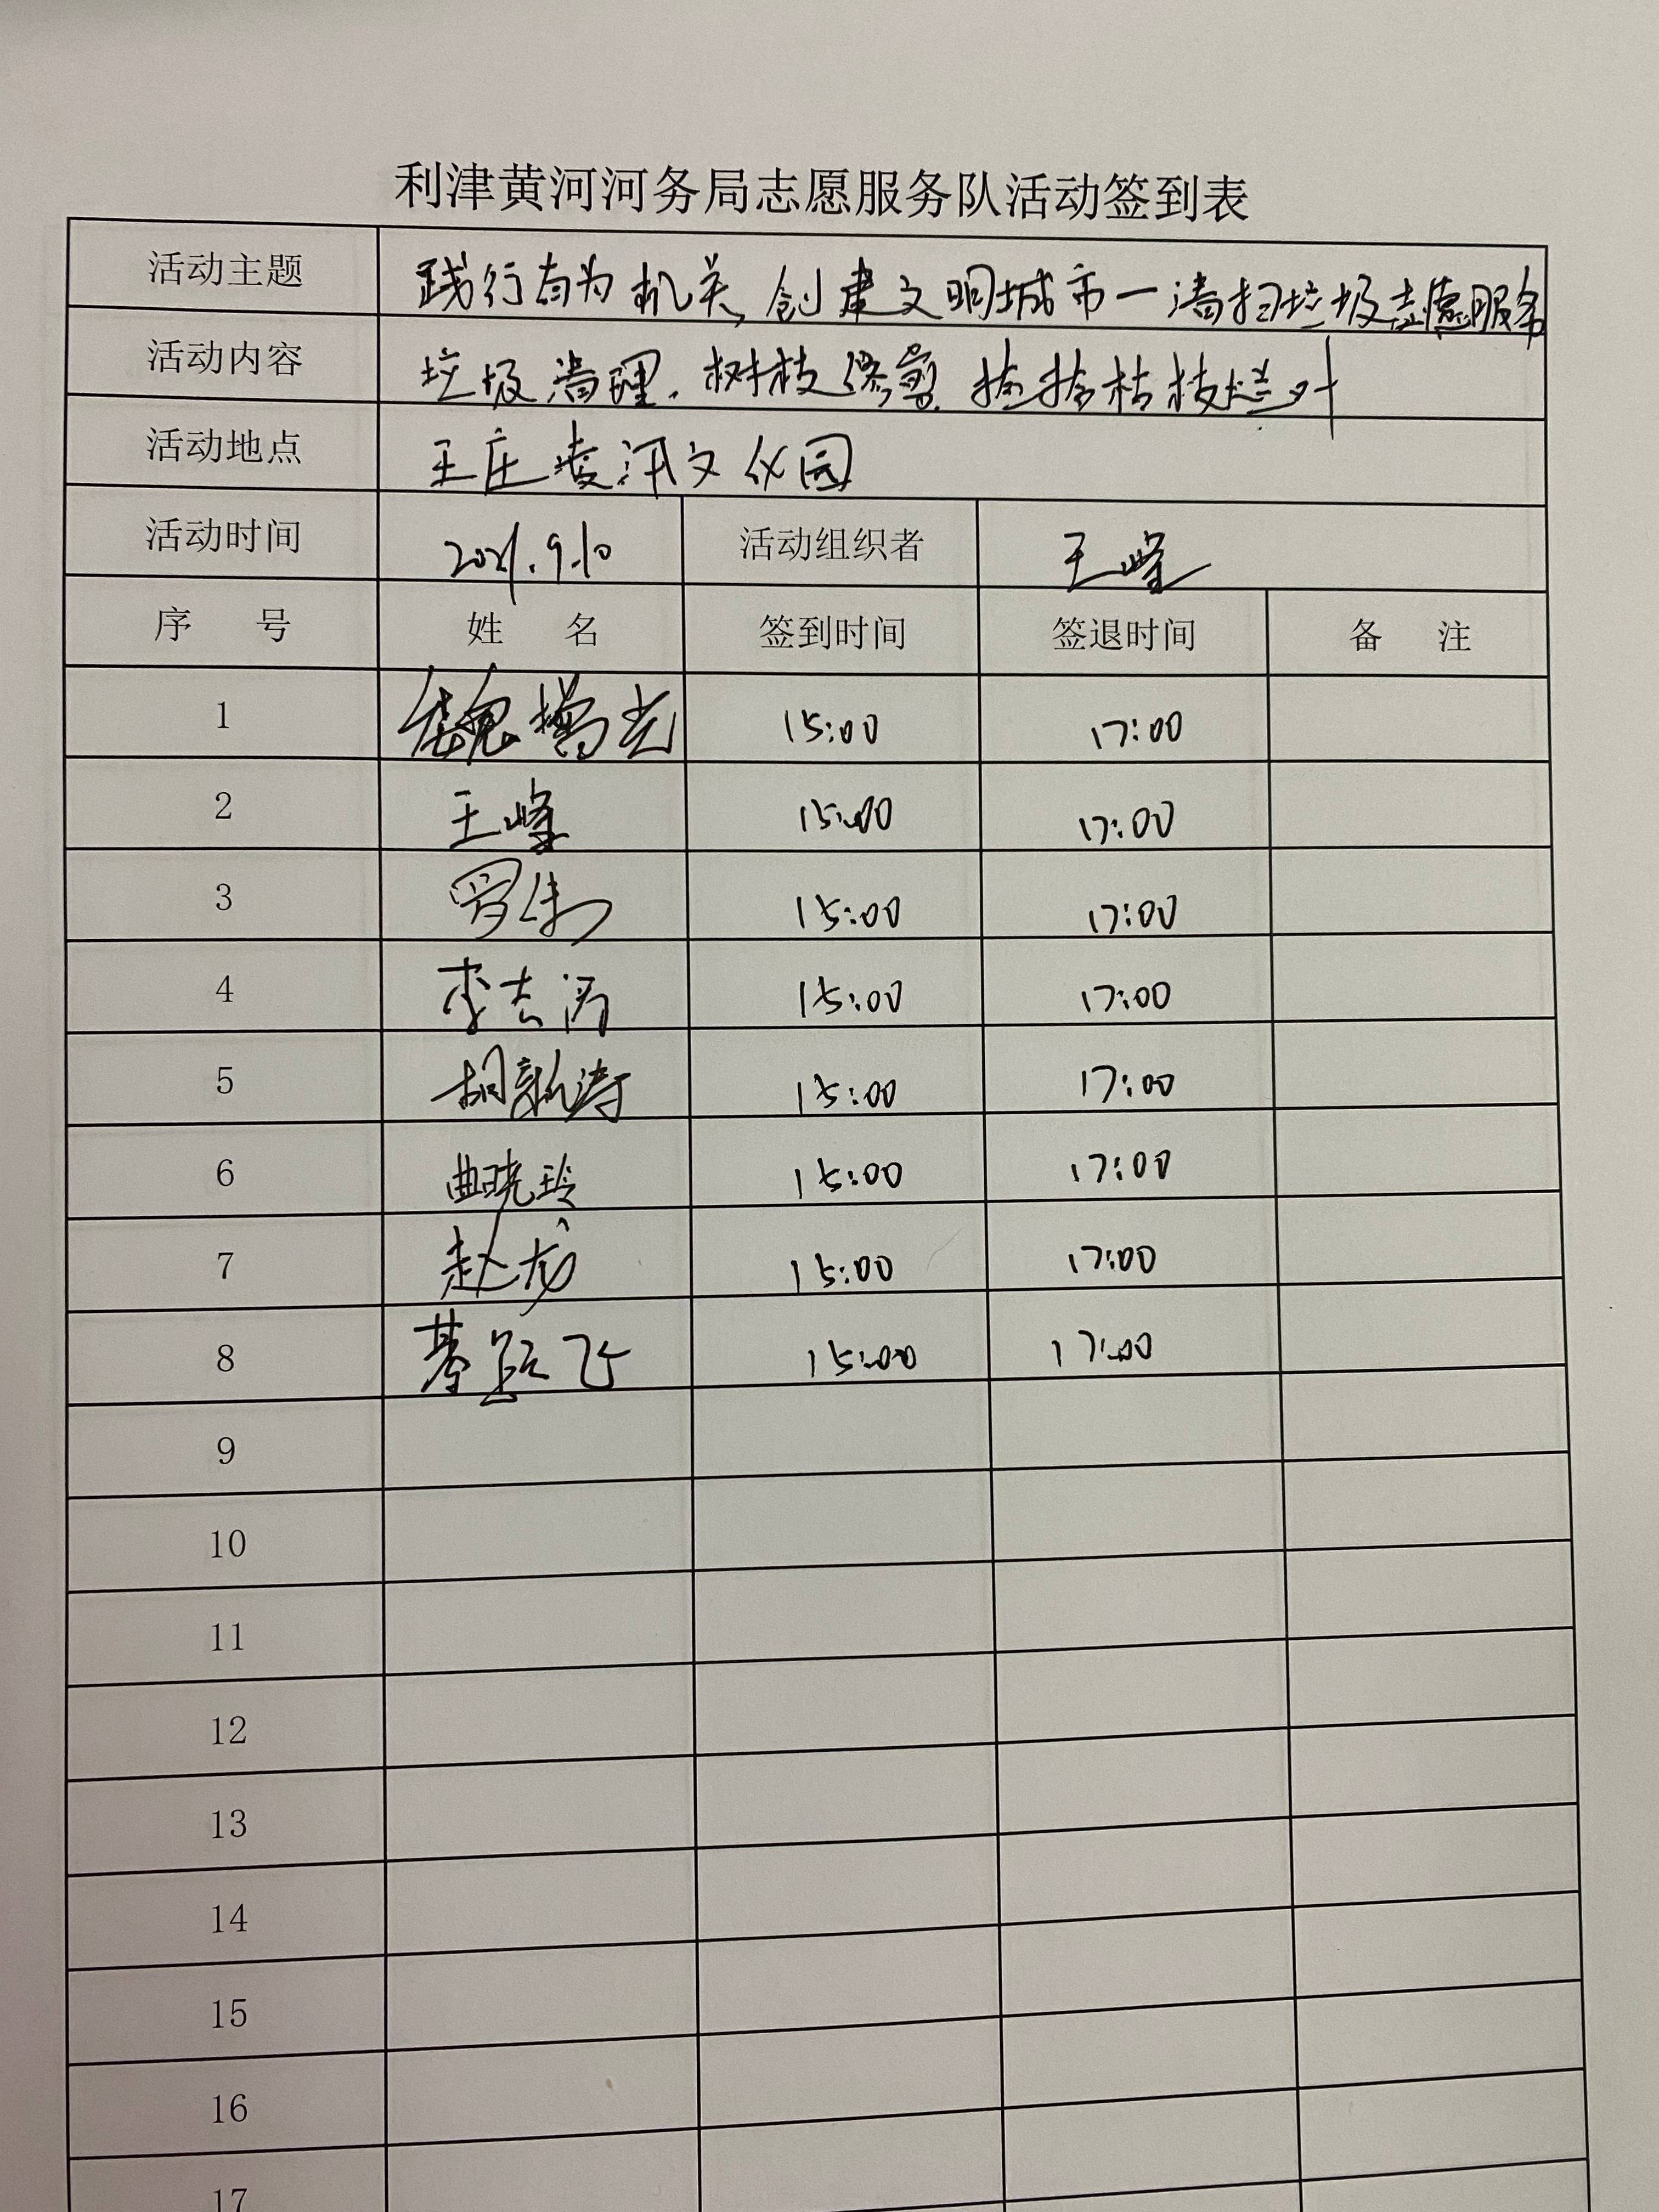 利津黄河河务局志愿服务队活动签到表
活动主题 践行有为机关,创建文明城市一清扫垃圾志愿服务
活动内容 垃圾清理.树枝修剪.捡拾枯枝烂叶
活动地点 王庄凌汛文化园
活动时间 2021.9.10 活动组织者 王峰
序 号 姓 名 签到时间 签退时间 备 注
1 魏增光 15:00 17:00
2 王峰 15:00 17:00
3 罗伟 15:00 17:00
4 李 15:00 17:00
5 胡新涛 15:00 17:00
6 曲晓玲 15:00 17:00
7 赵龙 15:00 17:00
8 飞 15:00 17:00
9
10
11
12
13
14
15
16
17